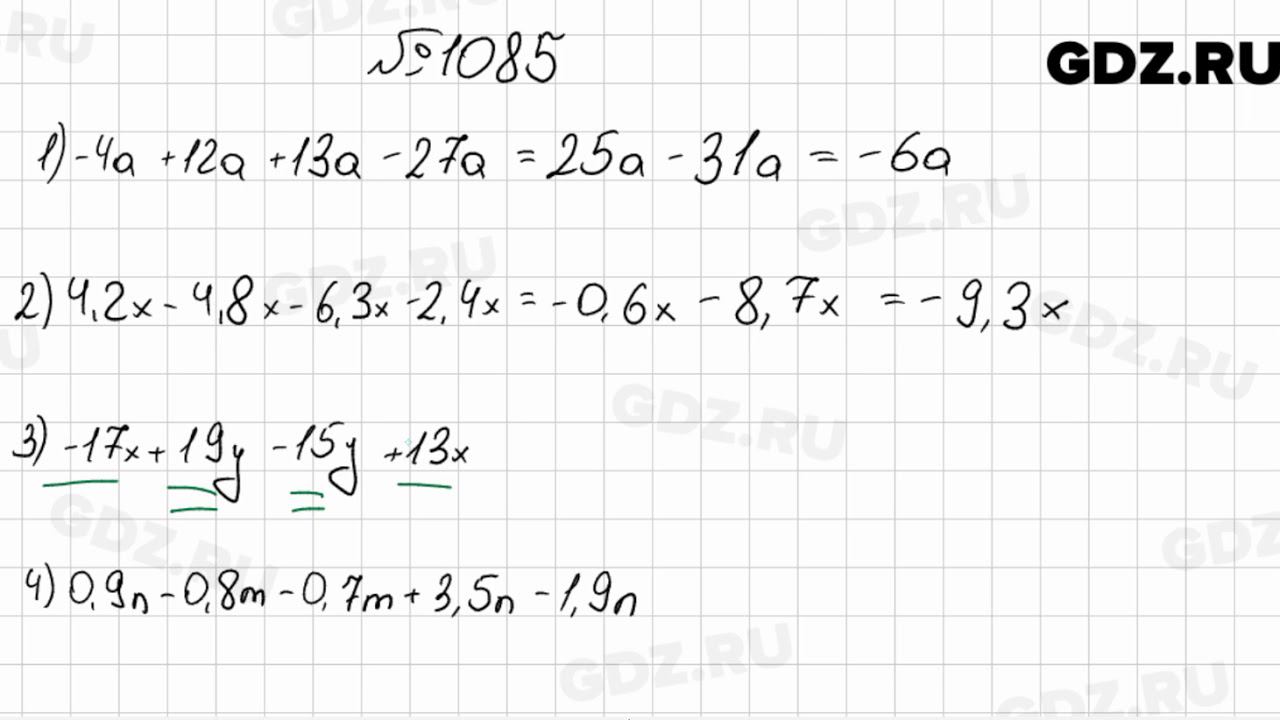 №1085
GDZ.RU
1) -4a +12a +13a -27a = 25a - 31a = -6a
2) 4,2x - 4,8x - 6,3x -2,4x = -0,6x - 8,7x = -9,3x
3) -17x + 19y -15y +13x
4) 0,9n - 0,8m - 0,7m + 3,5n - 1,9n